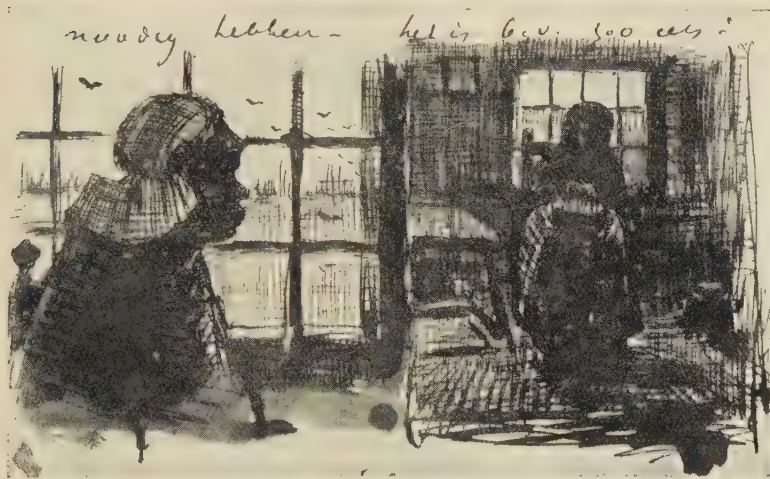 noodig hebben – het is b.v. 300 els :